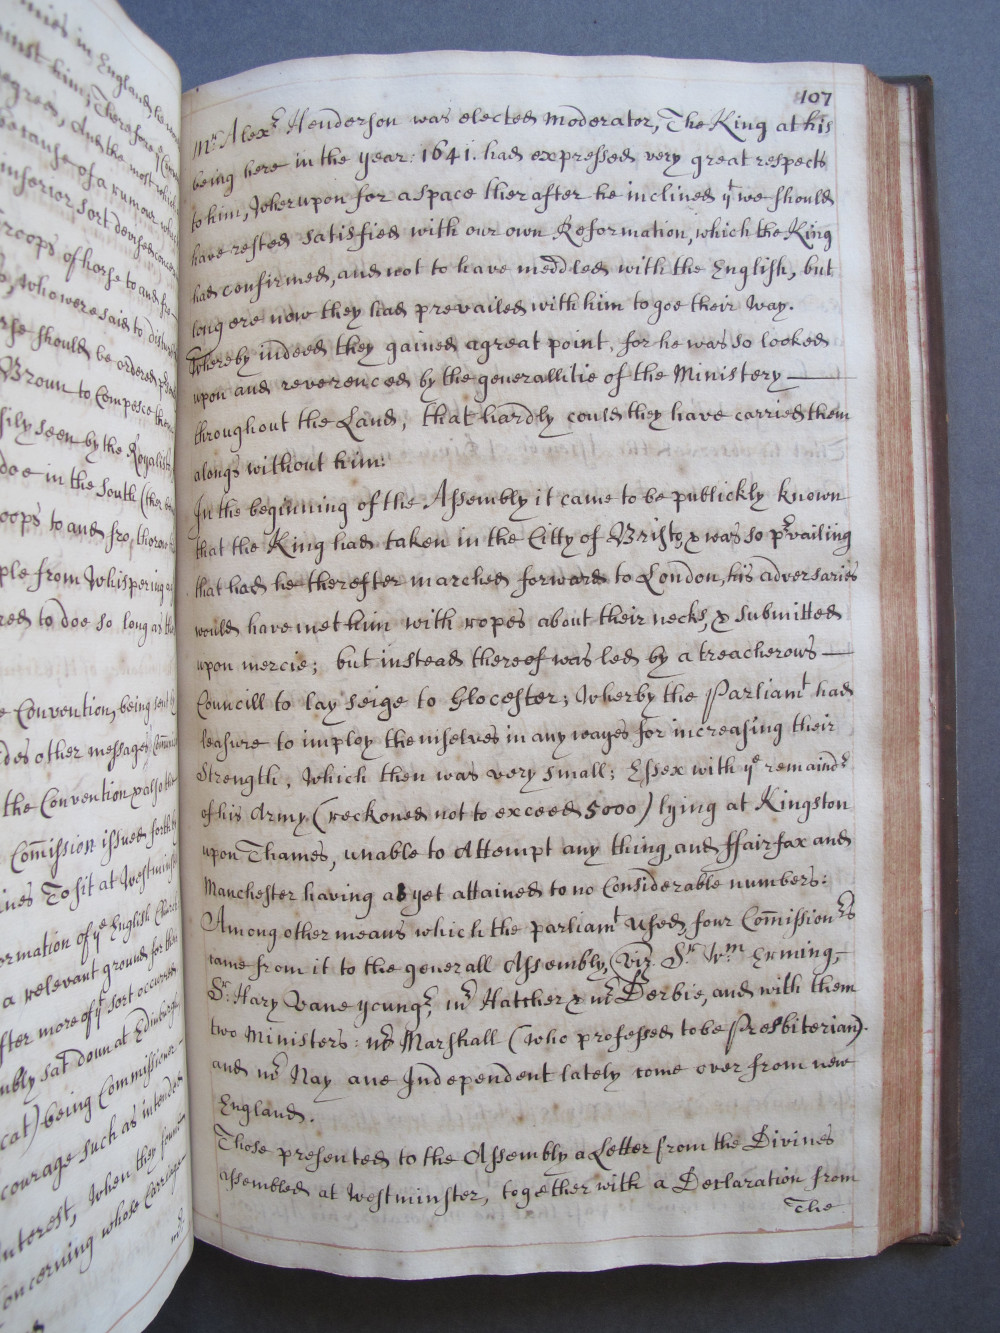 nies in England he
inst him; Therefore ye
egrees, And the most
because of a rumour
inferior sort devysed
Troops of horse to and fro
who were said to
should be ordered
Broun to Compesce
sily seen by the Royalists
doe in the South
oops to and fro,
ple from Whispering
red to doe so long as
e Convention, being sent
des other messages
the Convention
Comission issued forth
ines To sit at Westminster
ormation of ye English Church
a relevant ground for
fter more of yt sort occurred
mbly sat doun at Edinburgh
cat) being Commissioner
courage such as intended
nterest, When they found
concerning whose Carriage
107
Mr Alexr Henderson was elected Moderator, The King at his
being here in the year: 1641. had expressed very great respects
to him, Wherupon for a space therafter he inclined yt we should
have rested satisfied with our own Reformation, which the King
had confirmed, and not to have meddled with the English, but
long ere now they had prevailed with him to goe their way.
Whereby indeed they gained a great point, for he was so looked
upon and reverenced by the generallitie of the Ministery —
throughout the Land, that hardly could they have carried them
alongs without him:
In the beginning of the Assembly it came to be publickly known
that the King had taken in the Citty of Bristo, & was so prvailing
that had he therefter marched forward to London, his adversaries
would have met him with ropes about their necks, & submitted
upon mercie; but instead thereof was led by a treacherows —
Councill to lay seige to Glocester; Wherby the Parliamt had
leasure to imploy themselves in any wayes for increasing their
Strength, Which then was very small; Essex with ye remaindr
of his Army (reckoned not to exceed 5000) lying at Kingston
upon Thames, unable to Attempt any thing, and ffairfax and
Manchester having as yet attained to no Considerable numbers:
Among other means which the parliamt used, four Comissionrs
came from it to the generall Assembly, (viz. Sr Wm Erming,
Sr: Hary Vane youngr, mr Hatcher & mr Derbie, and with them
two Ministers: mr Marshall (who professed to be Presbiterian).
and mr Nay ane Independent lately come over from new
England.
Those presented to the Assembly a Letter from the Divines
assembled at Westminster, together with a Declaration from
The